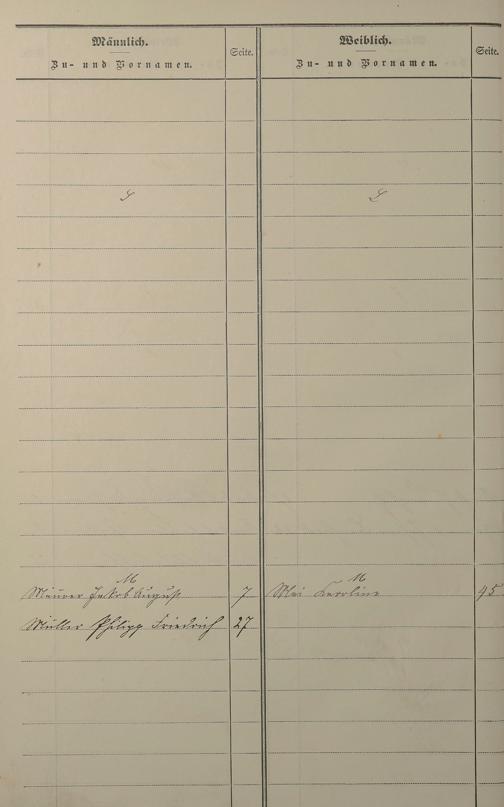 Männlich.
Zu- und Vornamen.
Seite.
Weiblich.
Zu- und Vornamen.
Seite.
L
L
M
Meurer Jakob August 7
Müller Philipp Friedrich 27
M
Mai Karoline 45